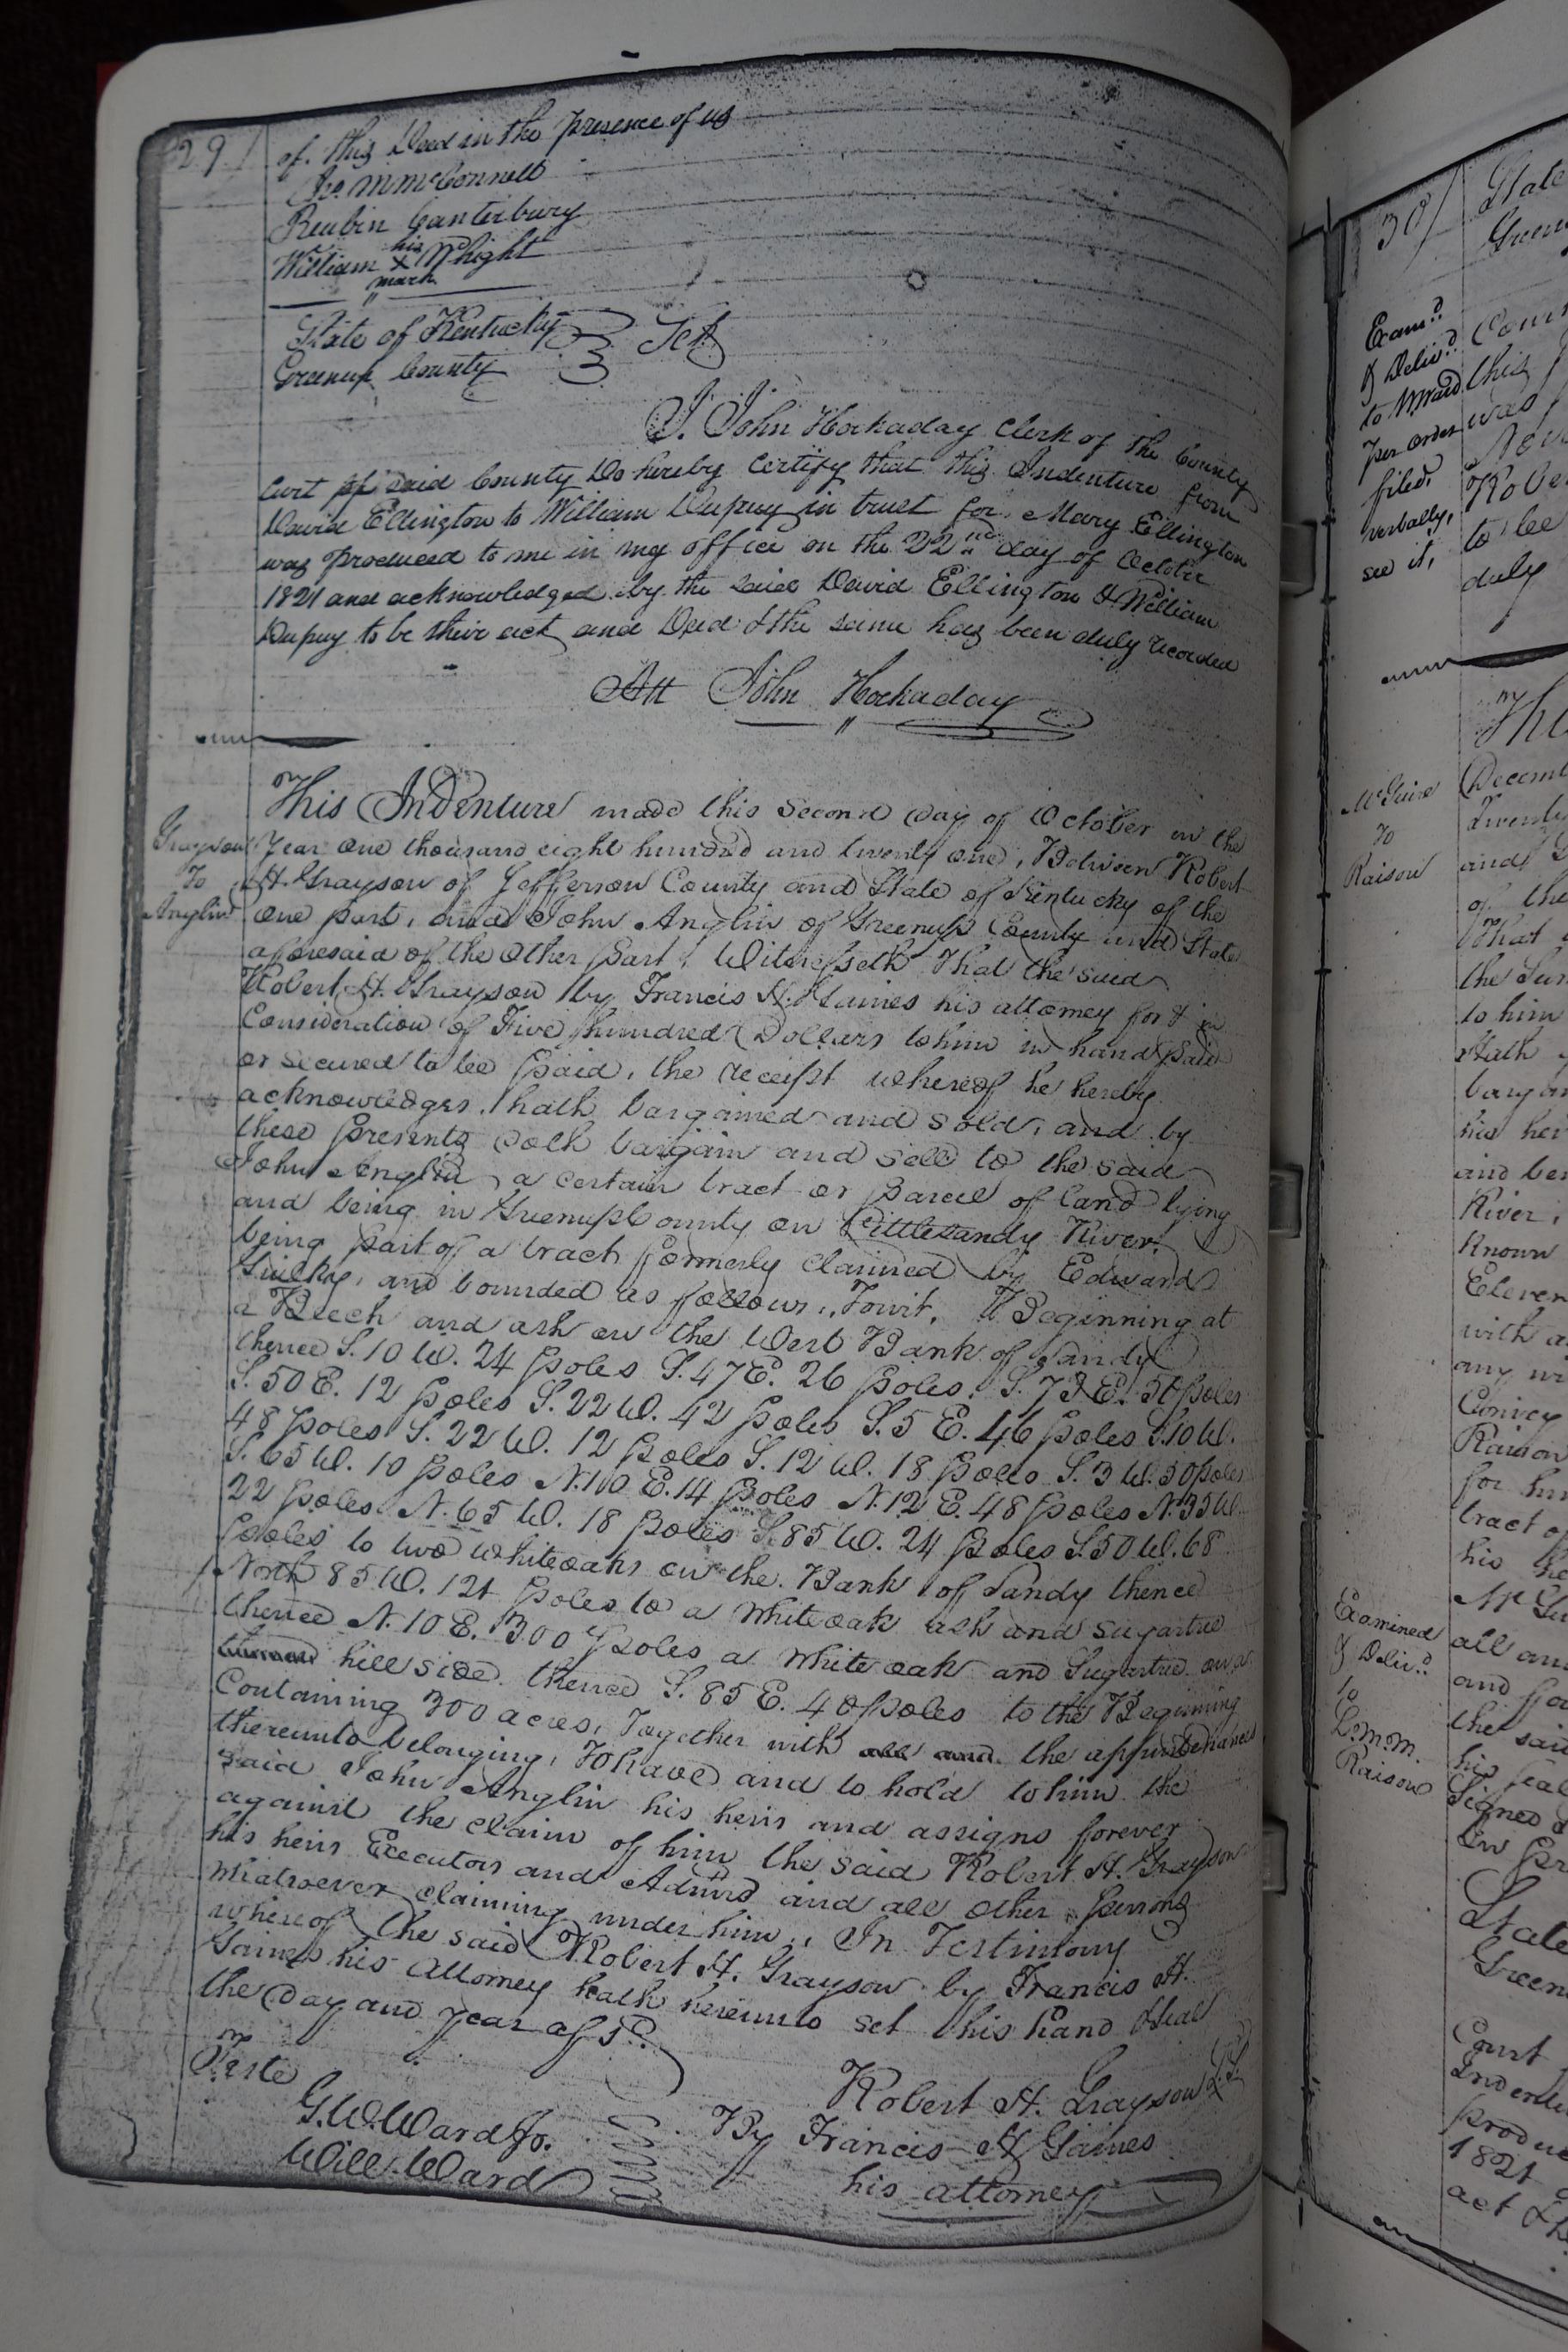 29/
of this Deed in the presence of us
Jo. M McConnell
Reubin Canterbury
William his X mark Wright
State of Kentucky } Sct
Greenup County
I. John Hockaday Clerk of the County
Curt of said County Do hereby Certify that this Indenture from
David Ellington to William Dupuy in trust for Mary Ellington
was produced to me in my office on the 22nd day of Octobr
1821 and acknowledged by the said David Ellington & William
Dupuy to be their act and Deed & the same has been duly recorded
Att John Hockaday
Grayson
To
Anglin
This Indenture made this second day of October in the
Year One thousand eight hundred and twenty one, Between Robert
H. Grayson of Jefferson County and State of Kentucky of the
one part, and John Anglin of Greenup County and State
aforesaid of the Other part, Witnesseth That the said
Robert H. Grayson by Francis H. Gaines his attorney for & in
Consideration of Five hundred Dollars to him in hand paid
or secured to be paid, the receipt whereof he hereby
acknowledges, hath bargained and sold, and by
these presents doth bargain and sell to the said
John Anglin a certain tract or parcel of land lying
and being in Greenup County on Little sandy River,
being part of a tract formerly claimed by Edward
and bounded as follows, Towit, Beginning at
a Beech and ash on the West Bank of Sandy
thence S. 10 W. 24 poles S. 47 E. 26 poles, S. 73 E. 50 poles
S. 50 E. 12 poles S. 22 W. 42 poles S. 5 E. 46 poles S. 10 W.
48 poles S. 22 W. 12 poles S. 12 W. 18 poles S. 3 W. 50 poles
S. 65 W. 10 poles N. 10 E. 14 poles N. 12 E. 48 poles N. 35 W.
22 poles N. 65 W. 18 poles S. 85 W. 24 poles S. 50 W. 68
poles to two whiteoaks on the Bank of Sandy thence
North 85 W. 121 poles to a white oak ash and sugartree
thence N. 10 E. 300 poles a white oak and Sugartree on a
hill side thence S. 85 E. 40 poles to the Beginning
Containing 300 acres, Together with all and the appurtenances
thereunto belonging, To have and to hold to him the
said John Anglin his heirs and assigns forever
against the claim of him the said Robert H. Grayson
his heirs Executors and Admrs and all other persons
whatsoever claiming under him, In Testimony
whereof the said Robert H. Grayson by Francis H.
Gaines his attorney hath hereunto set his hand & seal
the day and year afsd.
Teste
G. W. Ward Jr.
Will. Ward
Robert H. Grayson L.S.
By Francis H Gaines
his attorney
30/
State
Exam.d
& Deliv.d
to W Ward
per order
filed.
verbally,
see it,
this
was
to be
duly
McGuire
To
Raison
and
of the
That
to him
Hath
and
River,
Known
Eleven
with a
Convey
Raison
tract of
his he
Examined
& Deliv.d
to
L.M.M.
Raison
all
and
the said
his seal
Signed &
State
Court
1821
act &